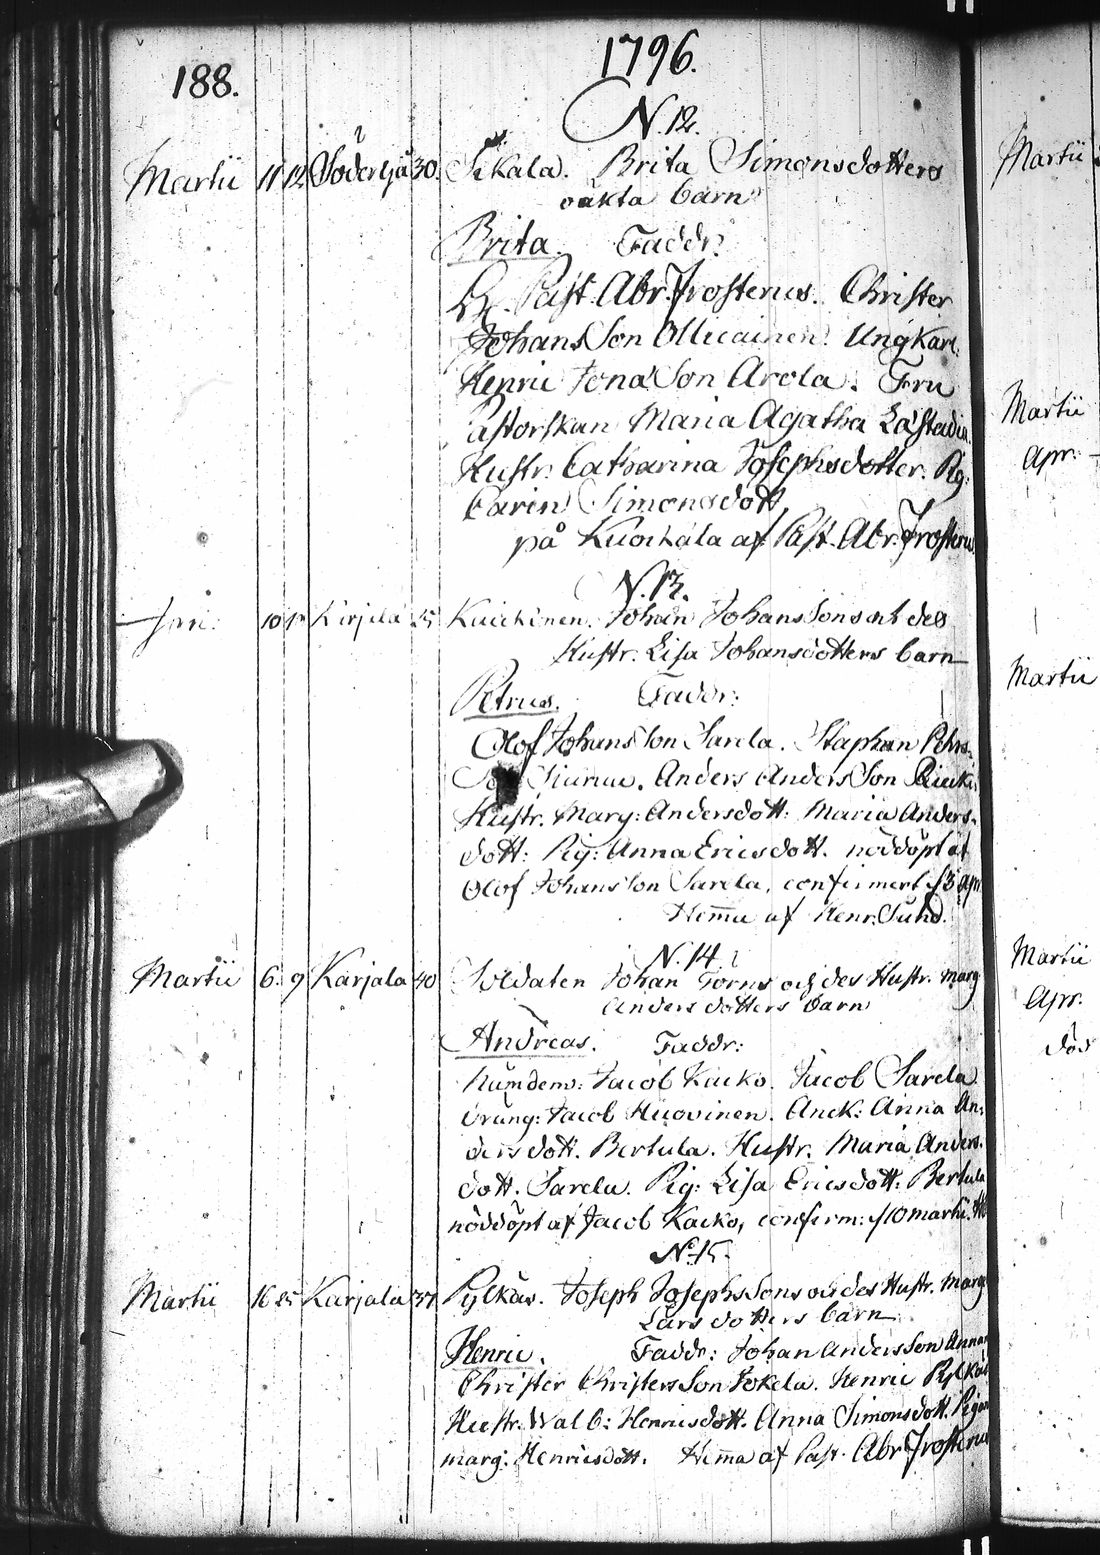 1796.
188.
N. 12.
Martii 11 12 Söderfjä 30. Sikala. Brita Simonsdotters
oäkta barn
Brita. Faddr:
Past. Abr. Frosterus. Christer
Johansson Ollicainen. Ungkarl.
Henric Jonasson Arola. Fru
Pastorskan Maria Agatha Lästadia.
Hustr. Catharina Josephsdotter. Pig:
Carin Simonsdott.
på Kuockala af Past. Abr. Frosterus
N. 13.
10 Karjala 35 Johan Johanssons och des
Hustr. Lisa Johansdotters barn
Petrus. Faddr:
Olof Johansson Sarela. Staphan Pehrs-
Anders Andersson
Hustr. Marg: Andersdott: Maria Anders-
dott: Pig: Anna Ericsdott. nöddöpt af
Olof Johansson Sarela, confirmert
Hema af Henr. Sund.
N. 14.
Martii 6. 9 Karjala 40 Soldaten Johan Torns och des Hustr. Marg
Anders dotters barn
Andreas. Faddr:
Nämdem: Jacob Kacko. Jacob Sarela
Drung: Jacob Huovinen. Anna An-
dersdott. Bertula. Hustr. Maria Anders-
dott. Sarela. Pig: Lisa Ericsdott: Bertula
nöddöpt af Jacob Kacko, confirm: 10 martii.
N. 15.
Martii 16 25 Karjala 37 Pylkäs. Joseph Josephssons och des Hustr. Marg
Lars dotters barn
Henric. Faddr: Johan Andersson
Christer Christersson Jokela. Henric Pylkäs
Hustr. Walb: Henricsdott. Anna Simonsdott. Pigan
marg: Henricsdott. Hema af Past. Abr Frosterus
Martii
Martii
Apr:
Martii
Martii
Apr.
död